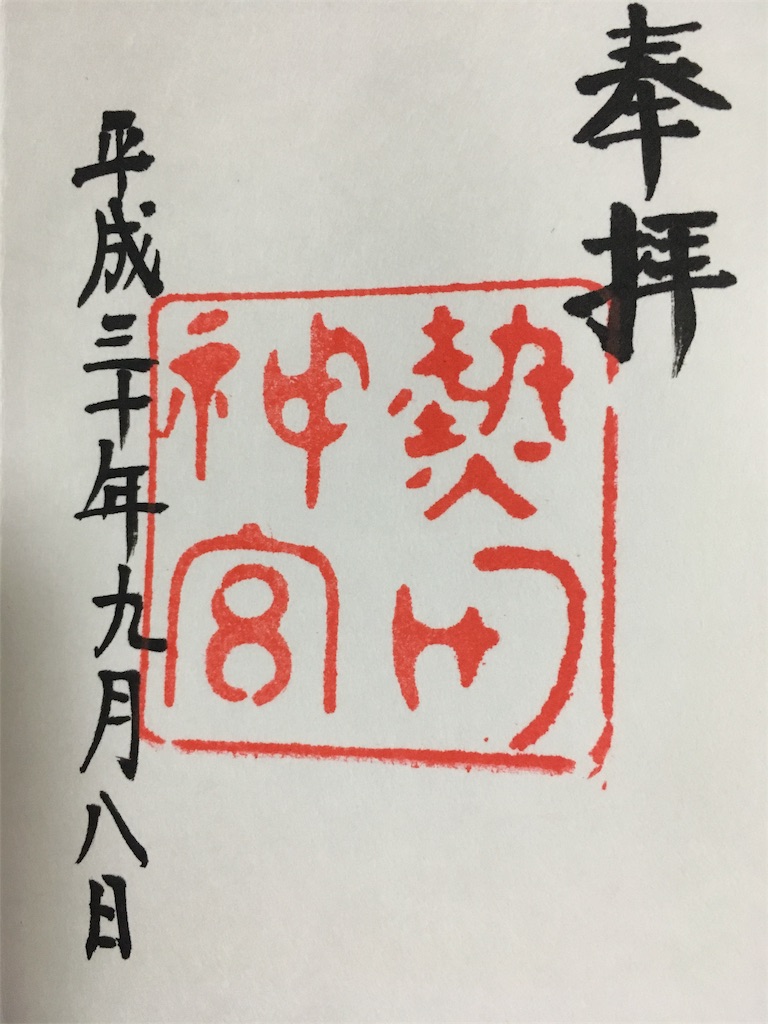 奉拝
熱田
神宮
平成三十年九月八日